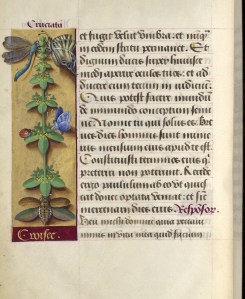 Cruciata
et fugit velut umbra: et nunq̄
in eodem statu permanet. Et
dignum ducis super huiusce
modi aperire oculos tuos: et ad
ducere eum tecum in iudiciū.
Quis potest facere mundū
de immundo conceptum semi
ne? Nonne tu qui solus es. Bre
ves dies hominis sunt nume
rus mensium eius apud te est.
Constituisti terminos eius q̄
preteriri non poterunt. Recede
ergo paululum ab eo ut quies
cat donec optata veniat. et sic̄
mercenarii dies eius. Respōsor.
Heu michi domine quia peccavi
nimis in vita mea quid faciam
Croisee.